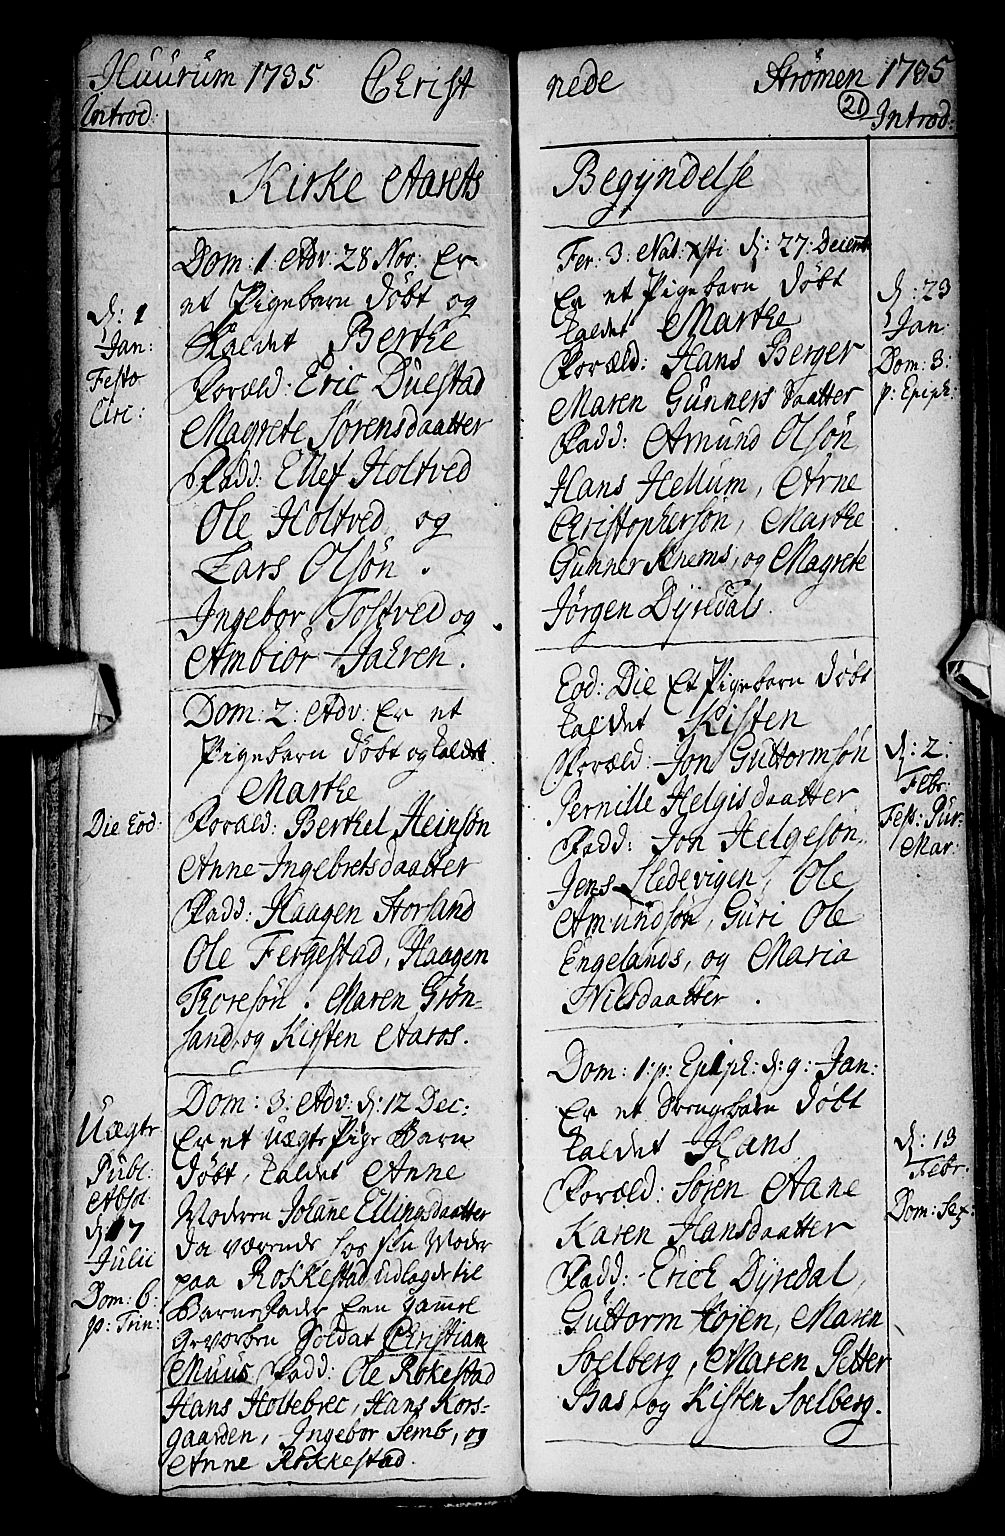 Huurum 1735 Christ
Introd:
Kirke Aarets
Dom: 1. Adv. 28 Nov: Er
et Pigebarn døbt og
Kaldet Berthe
Foræld: Eric Duestad
Magrete Sørensdaatter
Fadd: Ellef Holtved
Ole Holtved og
Lars Olsøn.
Ingebor Toltved og
Ambiør Jahren.
d: 1
Jan:
Festo
Circ:
Dom: 2: Adv: Er et
Pigebarn døbt og kaldet
Marthe
Foræld: Berthel Heinsøn
Anne Ingebretsdaatter
Fadd: Haagen Storsand
Ole Fergestad, Haagen
Thoresøn. Maren Grøn-
sand, og Kirsten Aaros.
Die Eod:
Dom: 3: Adv: d: 12 Dec:
Er et Uægte Pige Barn
døbt, kaldet Anne
Moderen Johane Ellingsdaatter
da værende hos sin Moder
paa Rokkestad udlagde til
BarneFader een gamel
Gevorben Soldat Christian
Muus Fadd: Ole Rokestad
Hans Holtebrec, Hans Kors-
gaarden, Ingebor Semb, og
Anne Rokkestad.
Uægte
Publ:
Absol:
d: 17
Julii
Dom: 6:
p: Trin:
nede Strømen 1735
21
Introd:
Begyndelse
Fer: 3. Nat: Xsti d: 27: Decemb
Er et Pigebarn døbt
kaldet Marthe
Foræld: Hans Berger
Maren Gunners Daatter
Fadd: Amund Olsøn
Hans Hellum, Arne
Christophersøn, Marthe
Gunner Knems, og Magrete
Jørgen Dyredals.
d: 23
Jan
Dom: 3:
p: Epiph:
Eod: Die Et Pigebarn døbt
kaldet Kisten
Foræld: Jon Guttormsøn
Pernille Helgisdaatter
Fadd: Jon Helgesøn,
Jens Sledevigen, Ole
Amundsøn, Guri Ole
Engelands, og Maria
Nilsdaatter.
d: 2:
Febr:
Fest: Pur:
Mar:
Dom: 1: p: Epiph: d: 9: Jan:
Er et Drengebarn døbt
kaldet Hans
Foræld: Søjen Aane
Karen Hansdaatter
Fadd: Erich Dyredal,
Guttorm Højen, Maren
Soelberg, Maren Petter
Bas, og Kisten Soelberg.
d: 13
Febr.
Dom: Sex: